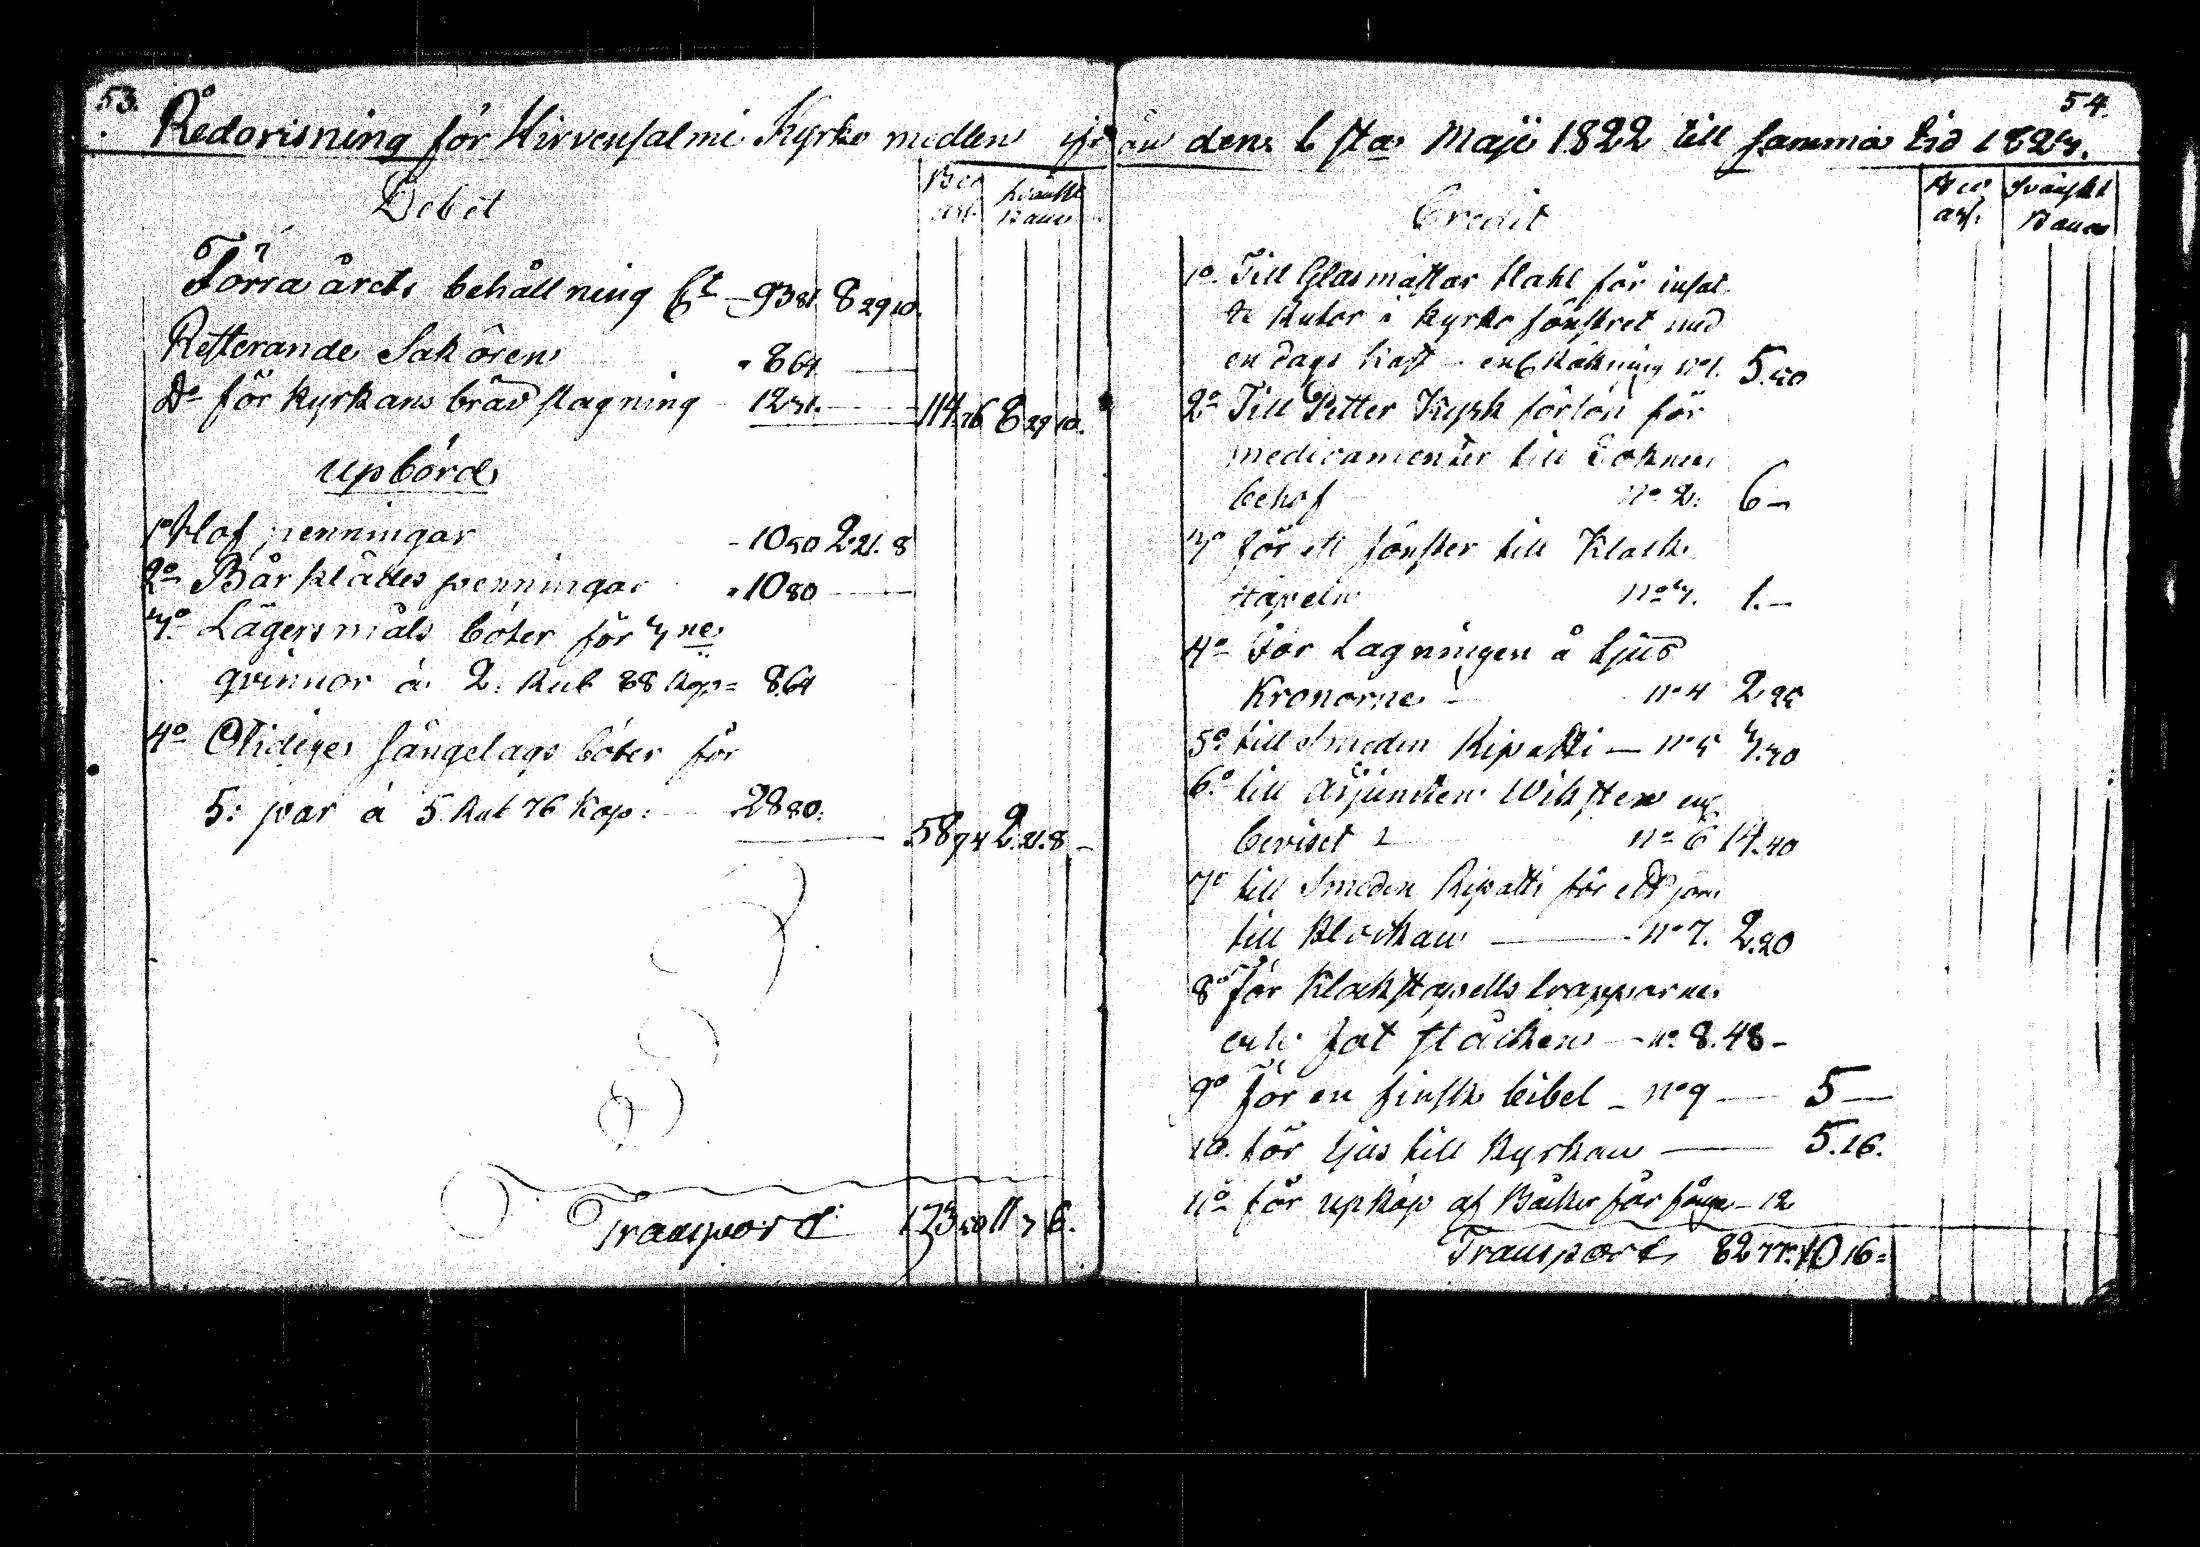 53.
Redovisning för Hirvensalmi Kyrko medlen ifr
Debet
Bco
ass.
Svänskt
Banco
Förra årets behållning Ct - 93 81. 8 29 10.
Resterande Saköören " 8 64
Do för kyrkans bräd slagning 12 31. 114. 76 8 29 10.
upbörd
1o Hof penningar - 10 50 2 21. 8
2o Bårklädes penningar " 10 80
3o Lägersmåls böter för 3ne
qvinnor á 2: Rub 88 Kop = 8.64
4o Otidiga sängelags böter för
5: par á 5 Rub 76 Kop: 28 80:
58 74 2. 21. 8
Transport 173 50 11 7 6.
54.
ån den 1sta Maji 1822 till samma tid 1823.
Credit
Bco
ass.
Svänskt
Banco
1o. Till Glasmästar Stahl för insat
te Rutor i kyrko fönstret med
en dags kost - enl Räkning No 1. 5. 50
2o Till Petter Kyrk förlön för
medicamenter till Soknens
behof No 2: 6 -
3o för ett fönster till Klock
stapeln No 3. 1. -
4o För Lagningen å Ljus
Kronorne - No 4 2 25
5o till Smeden Ripatti - No 5 3. 30
6o till Adjuncten Wiksten enl
beviset No 6 14. 40
7o till Smeden Ripatti för ett jern
till Klockan No 7. 2. 20
8o För Klockstapells trapporne
och fot stäcken - No. 8. 48 -
9o För en finsk bibel - No 9 5 -
10. för ljus till kyrkan 5. 16.
11o för upköp af Böcker för - 12
Transport 82 77. 10 16 =